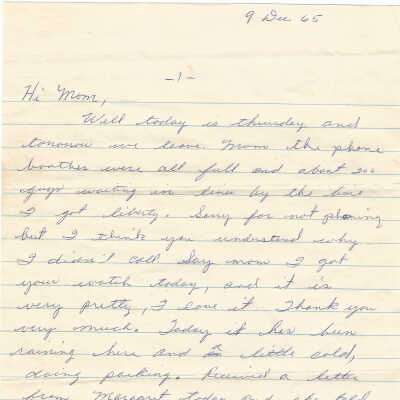 9 Dec 65
-1-
Hi Mom,
Well today is thursday and
tomorrow we leave. Mom the phone
boothes were all full and about 200
guys waiting in line by the time
I got liberty. Sorry for not phoning
but I think you understand why
I didn't call. Say mom I got
your watch today, and it is
very pretty, I love it. Thank you
very much. Today it has been
raining here and is little cold,
doing packing. Received a letter
from Margaret today and she told